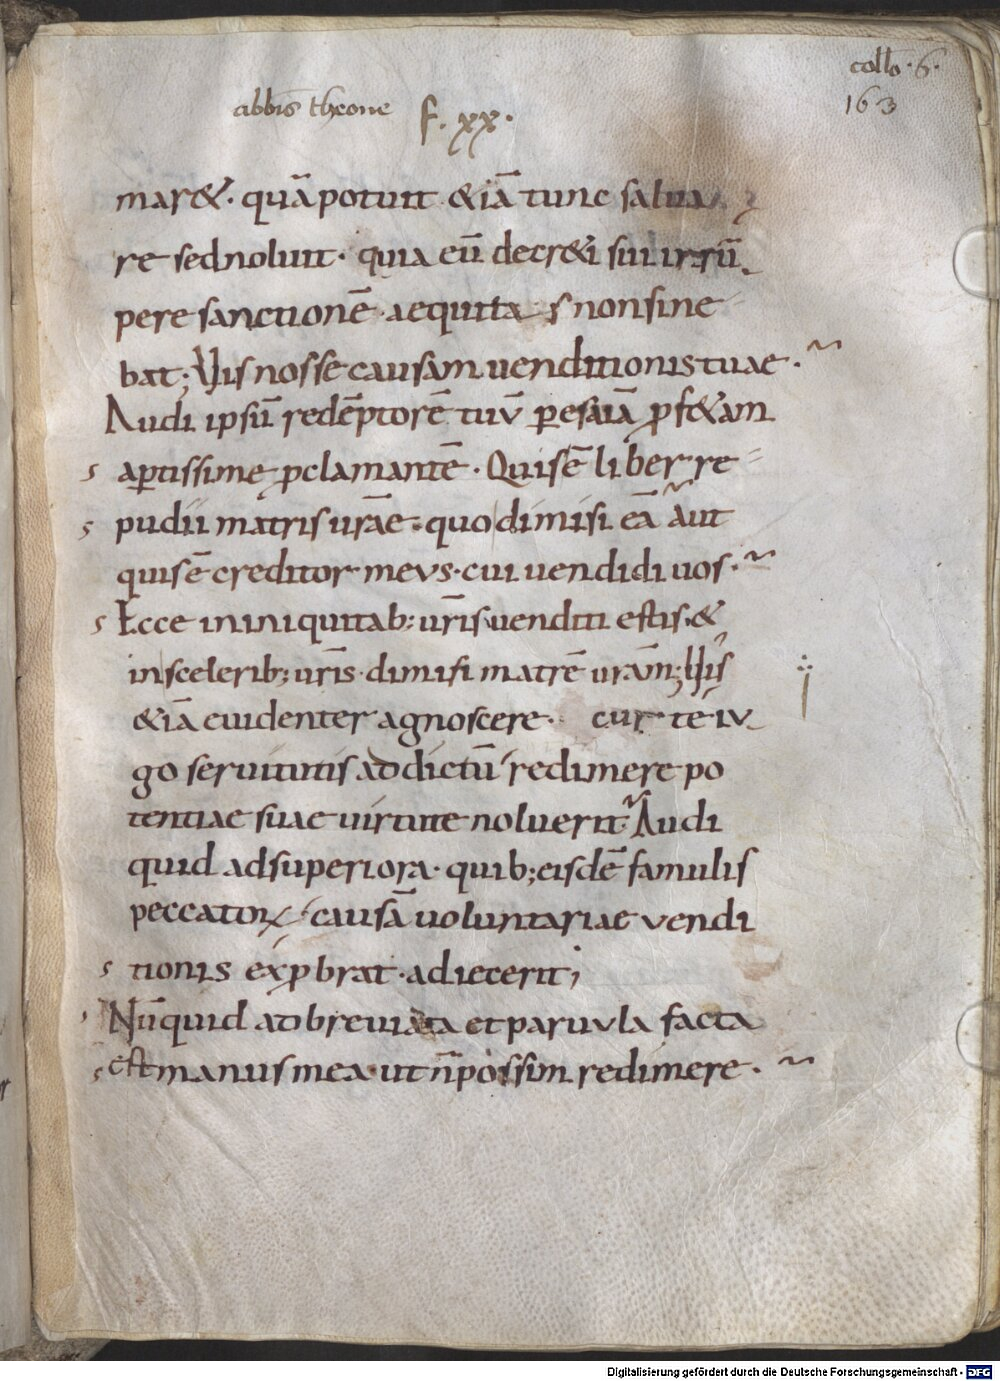 collo · 6 ·
163
abbis theone f. xx.
mar&. quā potuit &iā tunc salua
re sed noluit · quia eū decr&i sui irrū
pere sanctionē aequitas non sine
bat; Uis nosse causam uenditionis tuae.
Audi ipsū redēptorē tuū ꝑ esaiā ꝓf&am
aꝑtissime ꝓclamantē · Quis ē liber re
pudii matris urāe · quo dimisi eā aut
quis ē creditor meus · cui uendidi uos ·
Ecce in iniquitab; uris uenditi estis. &
in scelerib; uris dimisi matrē uram; Uis
&iā euidenter agnoscere · cur te iu
go seruitutis addictū redimere po
tentiae suae uirtute noluerit Audi
quid ad superiora · quib; eisdē famulis
peccatoꝝ causā uoluntariae uendi
tionis exꝓbrat · adiecerit;
Nūquid adbreuiata et paruula facta
est manus mea · ut n̄ possim redimere ·
Digitalisierung gefördert durch die Deutsche Forschungsgemeinschaft - DFG